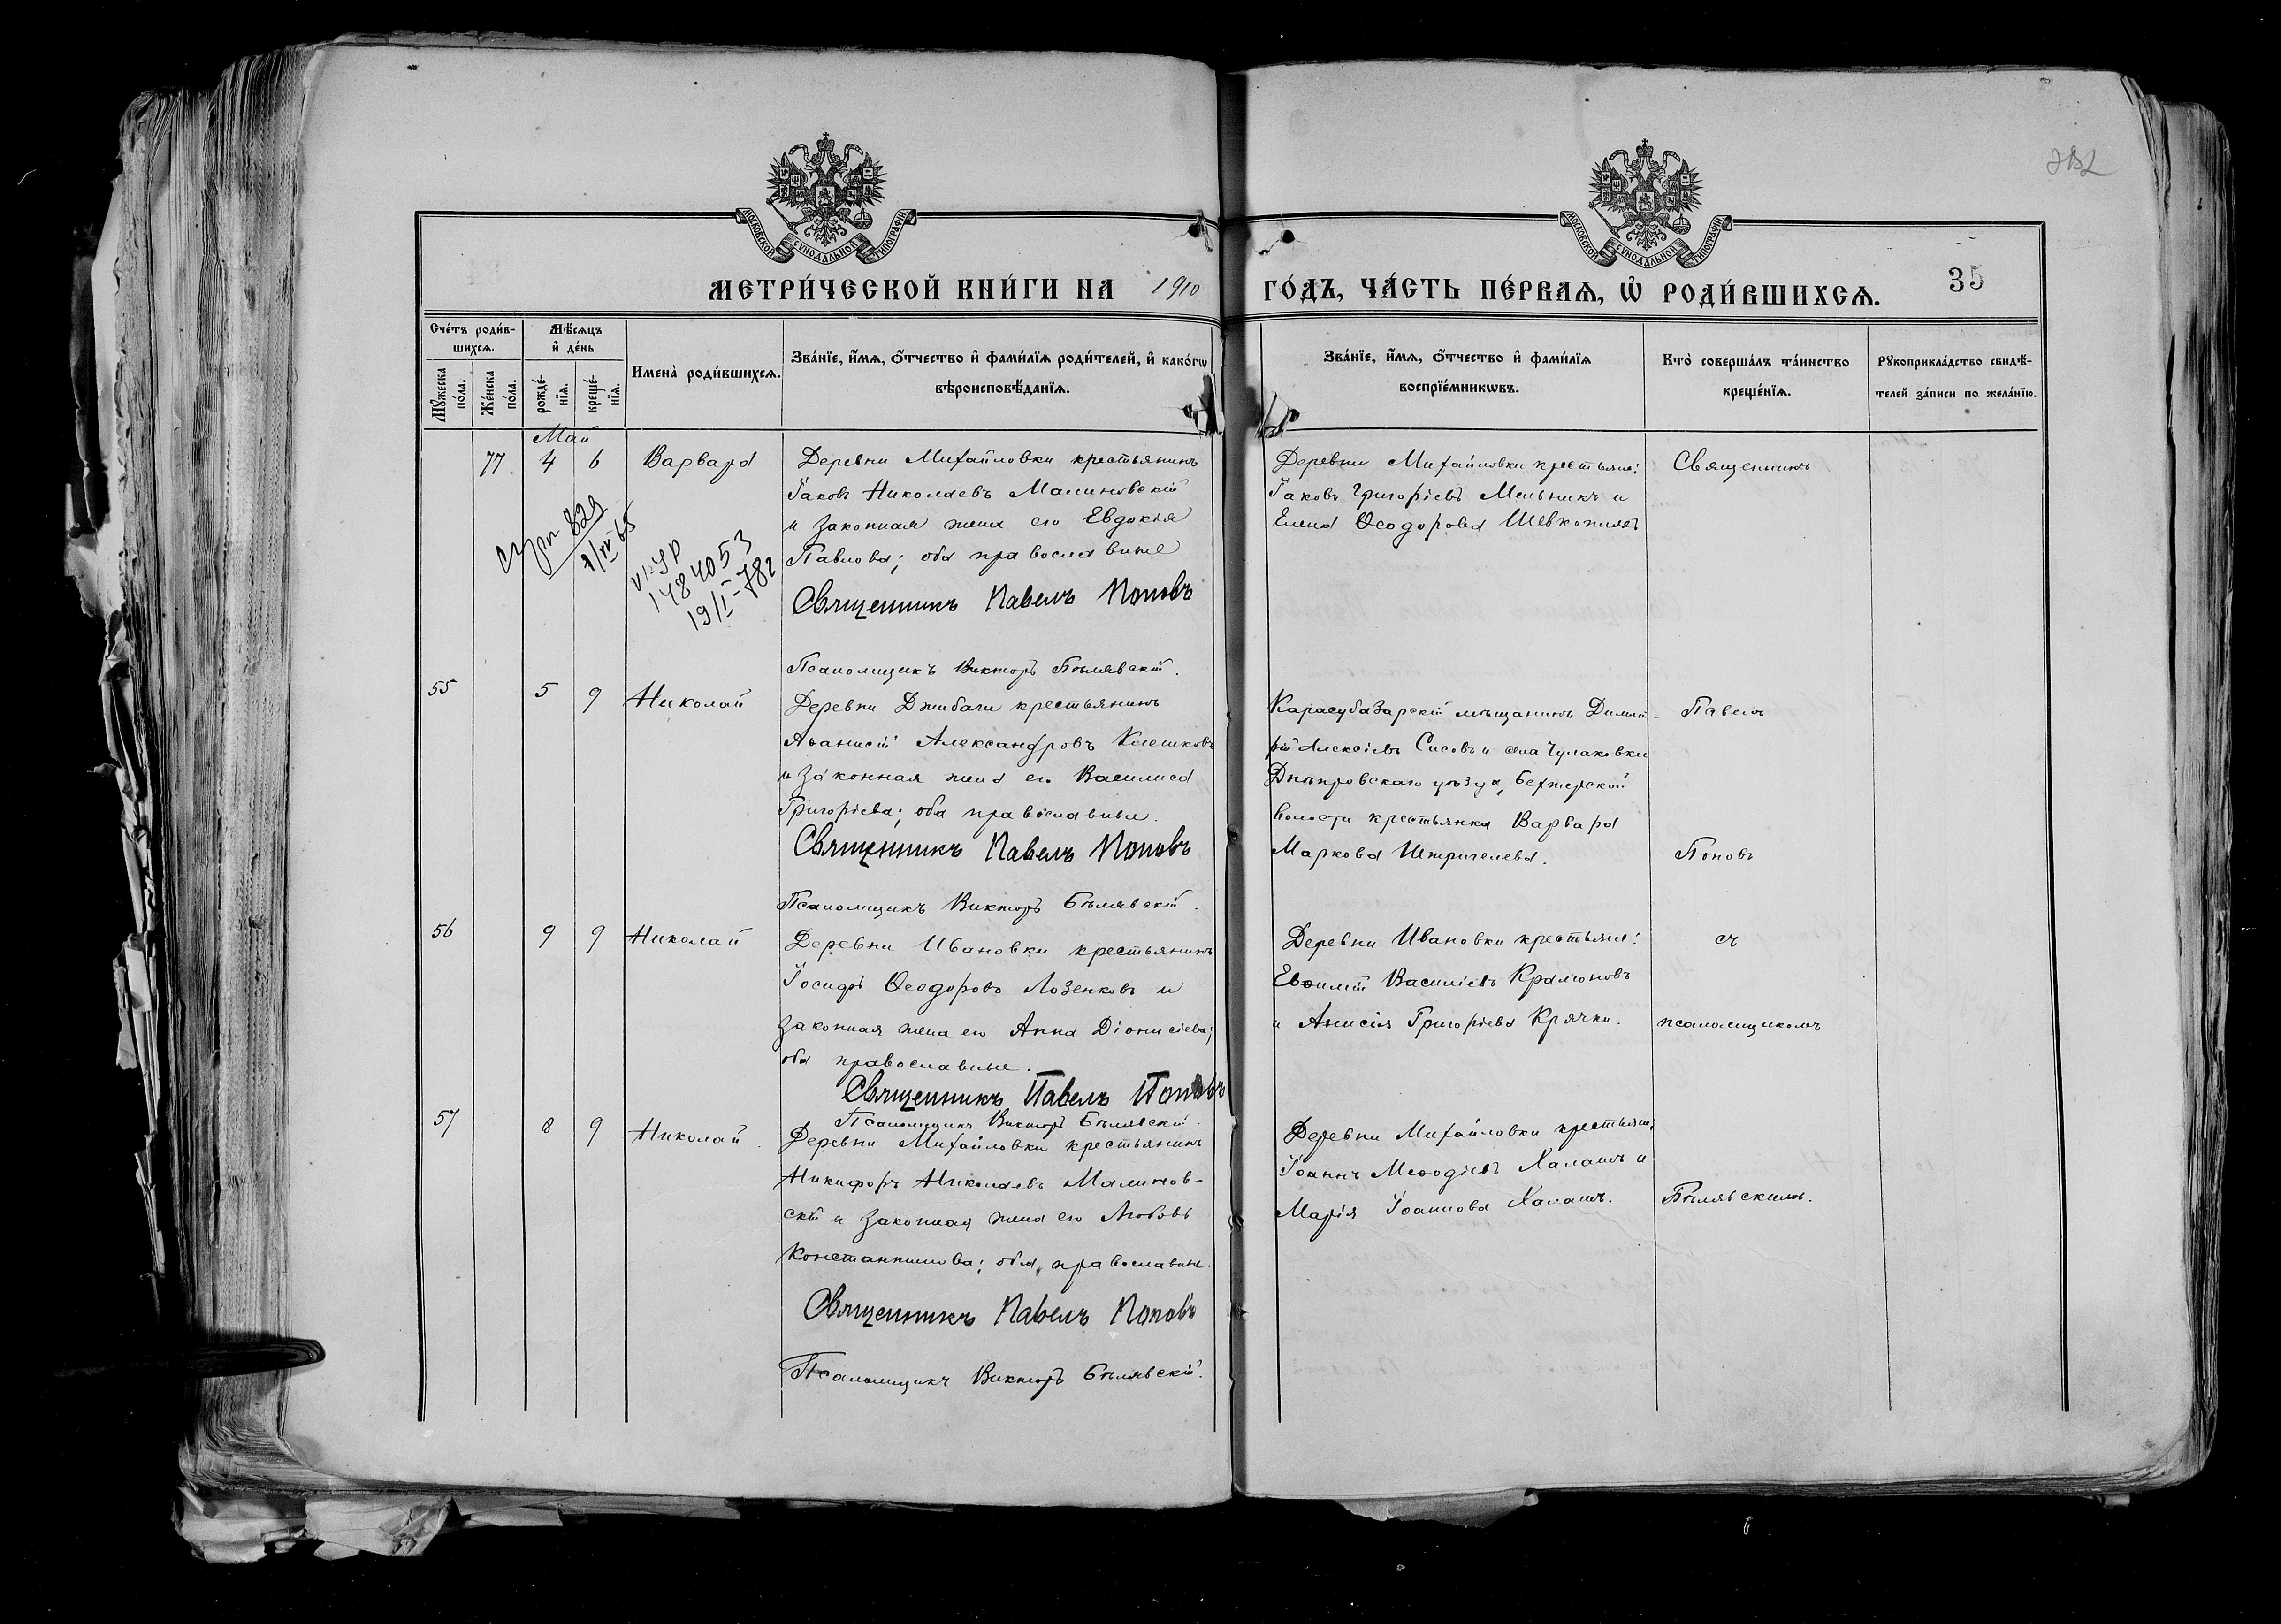 МОСКОВСКОЙ СѴНОДАЛЬНОЙ ТИПОГРАФІИ
МОСКОВСКОЙ СѴНОДАЛЬНОЙ ТИПОГРАФІИ
МЕТРИ́ЧЕСКОЙ КНИ́ГИ НА 1910 ГО́ДЪ, ЧА́СТЬ ПЕ́РВАѦ, Ѡ҆ РОДИ́ВШИХСѦ.
35
Сче́тъ роди́в-
шихсѧ.
Мѣ́сѧцъ
и҆ де́нь
Мꙋ́жеска
по́ла.
Же́нска
по́ла.
рожде́-
нїѧ.
креще́-
нїѧ.
Имена̀ роди́вшихсѧ.
Зва́нїе, и҆́мѧ, ѻ҆́тчество и҆ фами́лїѧ роди́телей, и҆ како́гѡ
вѣроисповѣ́данїѧ.
Зва́нїе, и҆́мѧ, ѻ҆́тчество и҆ фами́лїѧ
воспрїе́мникѡвъ.
Кто̀ соверша́лъ та́инство
креще́нїѧ.
Рꙋкоприкла́дство свидѣ́-
телей за́писи по жела́нїю.
Май
77 4 6 Варвара
Деревни Михайловки крестьянинъ
Іаковъ Николаевъ Малиновскій
и законная жена его Евдокія
Павлова; оба православные
Священникъ Павелъ Поповъ
Псаломщикъ Викторъ Бѣлявскій.
829
1784053
19/I-782
Деревни Михайловки крестьяне:
Іаковъ Григоріевъ Мельникъ и
Елена Ѳеодорова Шевкопляс
Священникъ
55 5 9 Николай
Деревни Джибачи крестьянинъ
Аѳанасій Александровъ Клешковъ
и законная жена его Василиса
Григоріева; оба православные.
Священникъ Павелъ Поповъ
Псаломщикъ Викторъ Бѣлявскій.
Карасубазарскій мѣщанинъ Димит-
рій Алексіевъ Сисовъ и села Чулаковки
Днѣпровскаго уѣзда, Бехтерской
волости крестьянка Варвара
Маркова
Павелъ
Поповъ
56 9 9 Николай
Деревни Ивановки крестьянинъ
Іосифъ Ѳеодоровъ Лозенковъ и
законная жена его Анна Діонисіева;
оба православные.
Священникъ Павелъ Поповъ
Псаломщикъ Викторъ Бѣлявскій.
Деревни Ивановки крестьяне:
Евѳимій Василіевъ Крамоновъ
и Анисія Григоріева Крячко.
съ
псаломщикомъ
57 8 9 Николай
Деревни Михайловки крестьянинъ
Никифоръ Николаевъ Малинов-
скій и законная жена его Любовь
Константинова; оба православные.
Священникъ Павелъ Поповъ
Псаломщикъ Викторъ Бѣлявскій.
Деревни Михайловки крестьяне:
Іоаннъ Меѳодіевъ Халаимъ и
Марія Іоаннова Халаимъ.
Бѣлявскимъ.